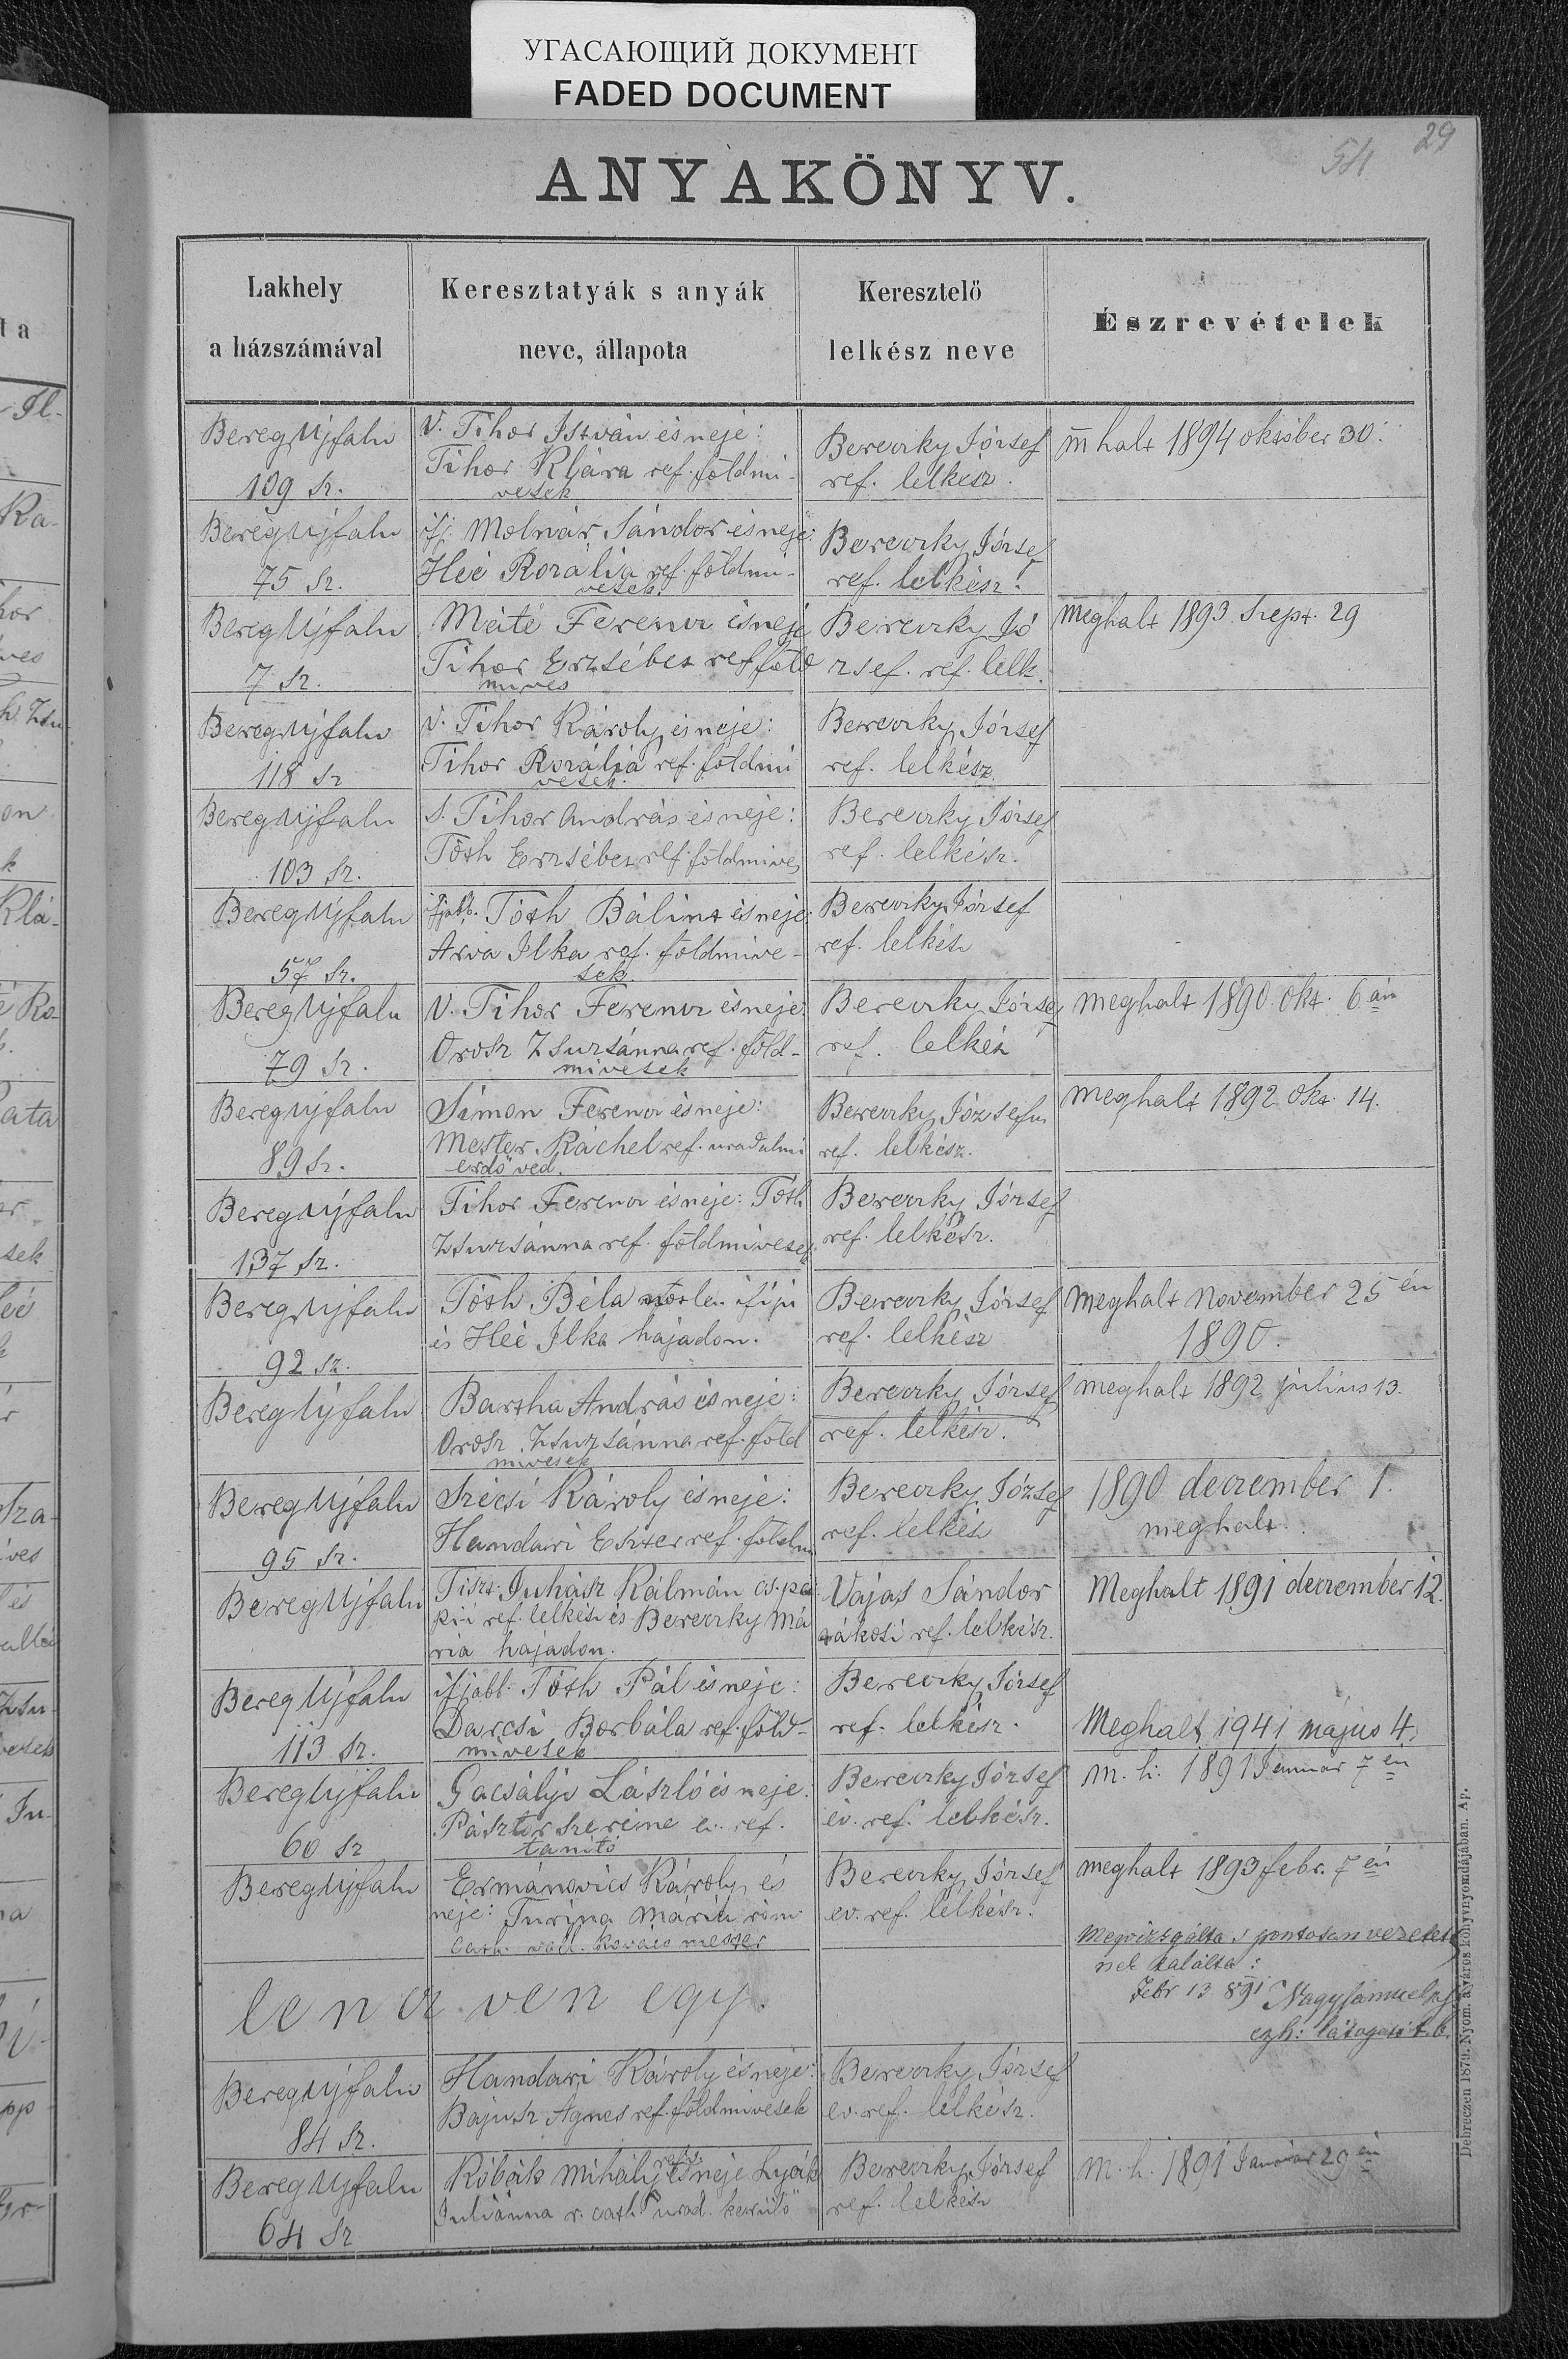 УГАСАЮЩИЙ ДОКУМЕНТ
FADED DOCUMENT
29
54
ANYAKÖNYV.
Lakhely
a házszámával
Keresztatyák s anyák
neve, állapota
Keresztelő
lelkész neve
Észrevételek
BeregUjfalu
109 sz.
V. Tihor István és neje:
Tihor Klára ref. földmi-
vesek
Bereczky József
ref. lelkész.
m halt 1894 október 30.
BeregUjfalu
75 sz.
ifj. Molnár Sándor és neje:
Heé Rozália ref. földmi-
vesek.
Bereczky József
ref. lelkész.
BeregUjfalu
7 sz.
Máté Ferencz és neje
Tihor Erzsébet ref föld
mives
Bereczky Jó
zsef. ref. lelk.
Meghalt 1893 Szept. 29
BeregUjfalu
118 sz
V. Tihor Károly és neje:
Tihor Rozália ref. földmi
vesek.
Bereczky József
ref. lelkész.
BeregUjfalu
103 sz.
S. Tihor András és neje:
Tóth Erzsébet ref. földmives
Bereczky József
ref. lelkész.
BeregUjfalu
57 sz.
ifjabb. Tóth Bálint és neje:
Arva Ilka ref. földmive-
sek.
Bereczky József
ref. lelkész
BeregUjfalu
79 sz.
V. Tihor Ferencz és neje:
Orosz Zsuzsánna ref. föld-
mivesek
Bereczky József
ref. lelkész
Meghalt 1890. Okt. 6 án
BeregUjfalu
89 sz.
Simon Ferencz és neje:
Mester Ráchel ref. uradalmi
erdő véd.
Bereczky József
ref. lelkész.
Meghalt 1892 Okt. 14.
BeregUjfalu
137 sz.
Tihor Ferencz és neje: Tóth
Zsuzsánna ref. földmivesek
Bereczky József
ref. lelkész.
BeregUjfalu
92 sz.
Tóth Béla nőtlen ifju
és Heé Ilka hajadon.
Bereczky József
ref. lelkész
Meghalt November 25 én
1890.
BeregUjfalu
Bartha András és neje:
Orosz Zsuzsánna ref. föld
mivesek
Bereczky József
ref. lelkész.
meghalt 1892 július 13.
BeregUjfalu
95 sz.
Szécsi Károly és neje:
Handari Eszter ref. földm
Bereczky József
ref. lelkész
1890 deczember 1.
meghalt.
BeregUjfalu
Tiszt. Juhász Kálmán
ref. lelkész és Bereczky Má
ria hajadon.
Vajas Sándor
rákosi ref. lelkész.
Meghalt 1891 deczember 12.
BeregUjfalu
113 sz.
ifjabb. Tóth Pál és neje:
Darcsi Borbála ref. föld-
mivesek
Bereczky József
ref. lelkész.
Meghalt 1941 május 4.
BeregUjfalu
60 sz
Gacsályi László és neje:
Pásztor Szeréne ev. ref.
tanító
Bereczky József
ev. ref. lelkész.
m. h: 1891 Január 7 én
BeregUjfalu
Ermánovics Károly és
neje: Turina Mária róm
cath. vall. kovács mester
Bereczky József
ev. ref. lelkész.
meghalt 1893 febr. 7 én
Megvizsgálta s pontosan vezetett
nek találta:
Febr 13 891 Nagy Sámuel
egyh: látogató t. b.
lencz ven egy.
BeregUjfalu
84 sz.
Handari Károly és neje:
Bajusz Ágnes ref. földmivesek
Bereczky József
ev. ref. lelkész.
BeregUjfalu
64 sz
Róbák Mihály és neje
Juliánna r. cath. urad. kerülő
Bereczky József
ref. lelkész
m. h. 1891 Január 29 én
Debreczen 1879. Nyom. a város könyvnyomdájában. Ap.